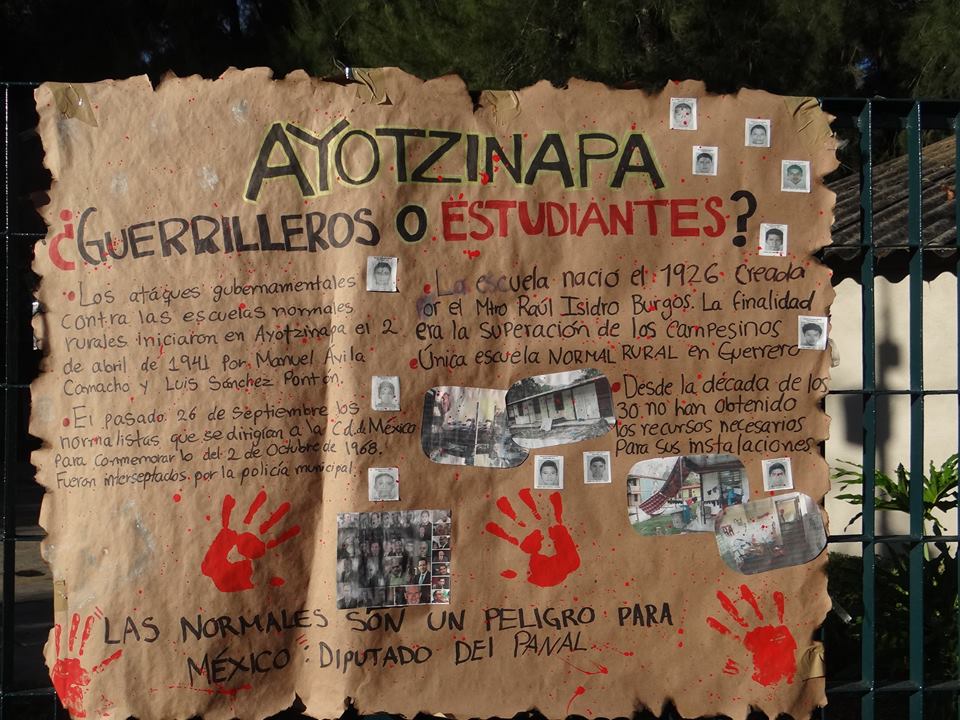 AYOTZINAPA
¿GUERRILLEROS O ESTUDIANTES?
• Los atáques gubernamentales
contra las escuelas normales
rurales iniciaron en Ayotzinapa el 2
de abril de 1941 por Manuel Ávila
Camacho y Luis Sánchez Pontón.
• El pasado 26 de septiembre los
normalistas que se dirigían a la Cd. de México
para conmemorar lo del 2 de Octubre de 1968.
Fueron interseptados por la policía municipal.
• La escuela nació el 1926 creada
por el Mtro Raúl Isidro Burgos. La finalidad
era la superación de los campesinos
• Única escuela NORMAL RURAL en Guerrero
• Desde la década de los
30 no han obtenido
los recursos necesarios
para sus instalaciones
LAS NORMALES SON UN PELIGRO PARA
MÉXICO" DIPUTADO DEl PANAL